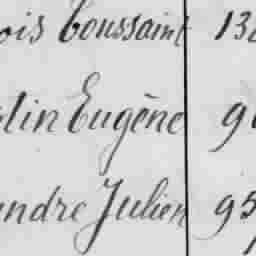 ois Toussaint 13
lin Eugène 9
andre Julien 95